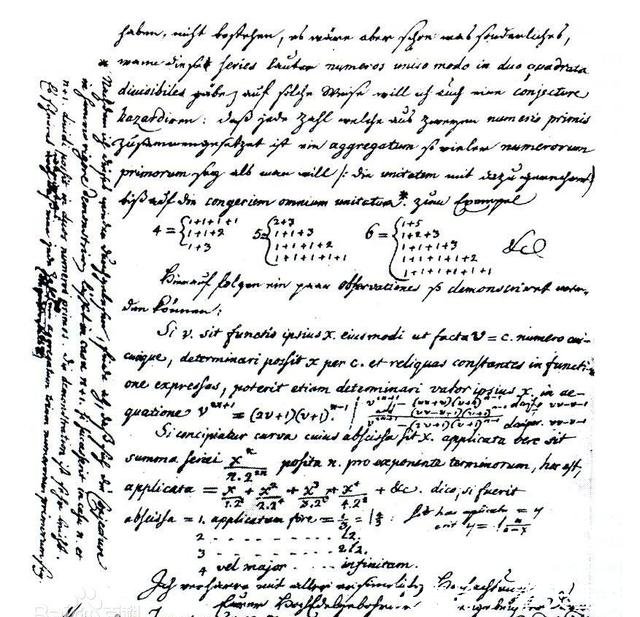 haben, nicht bestehen, es wäre aber schon was sonderliches,
wann diese series lauter numeros unico modo in duo quadrata
divisibiles gäbe, auf solche Weise will ich auch eine conjecture
hazardiren: daß jede Zahl welche aus zweyen numeris primis
zusammengesetzt ist ein aggregatum so vieler numerorum
primorum sey als man will /: die unitatem mit dazu gerechnet
biß auf die congeriem omnium unitatum * zum Exempel
4 = { 1+1+1+1
1+1+2
1+3
5 = { 2+3
1+1+3
1+1+1+2
1+1+1+1+1
6 = { 1+5
1+2+3
1+1+1+3
1+1+1+1+2
1+1+1+1+1+1
&c
Hierauf folgen ein paar observationes so demonstriret wer-
den können:
Si v. sit functio ipsius x. eiusmodi ut facta v = c. numero cui-
cunque, determinari possit x per c. et reliquas constantes in functi-
one expressas, poterit etiam determinari valor ipsius x. in ae-
quatione v^{2n+1} = (2v+1)(v+1)^{n-1}
Si concipiatur curva cuius abscissa sit x. applicata vero sit
summa seriei x^n/n.2^{2n} posita n. pro exponente terminorum, hoc est,
applicata = x/1.2^2 + x^2/2.2^4 + x^3/3.2^6 + x^4/4.2^8 + &c. dico, si fuerit
abscissa = 1. applicatam fore =
2 - - - - - - l2.
3 - - - - - - 2l2.
4 vel major - - - infinitam.
Ich verharre mit aller Hochachtung
Eurer Hochedelgebohrn
* Nachdem ich dieses wieder durchgelesen, finde ich, daß sich die conjecture
in summo rigore demonstriren lässet in casu n+1. si successerit in casu n. et
n+1. dividi possit in duos numeros primos. Die demonstration ist sehr leicht.
Es scheinet eine jede Zahl aggregatum trium numerorum primorum sey